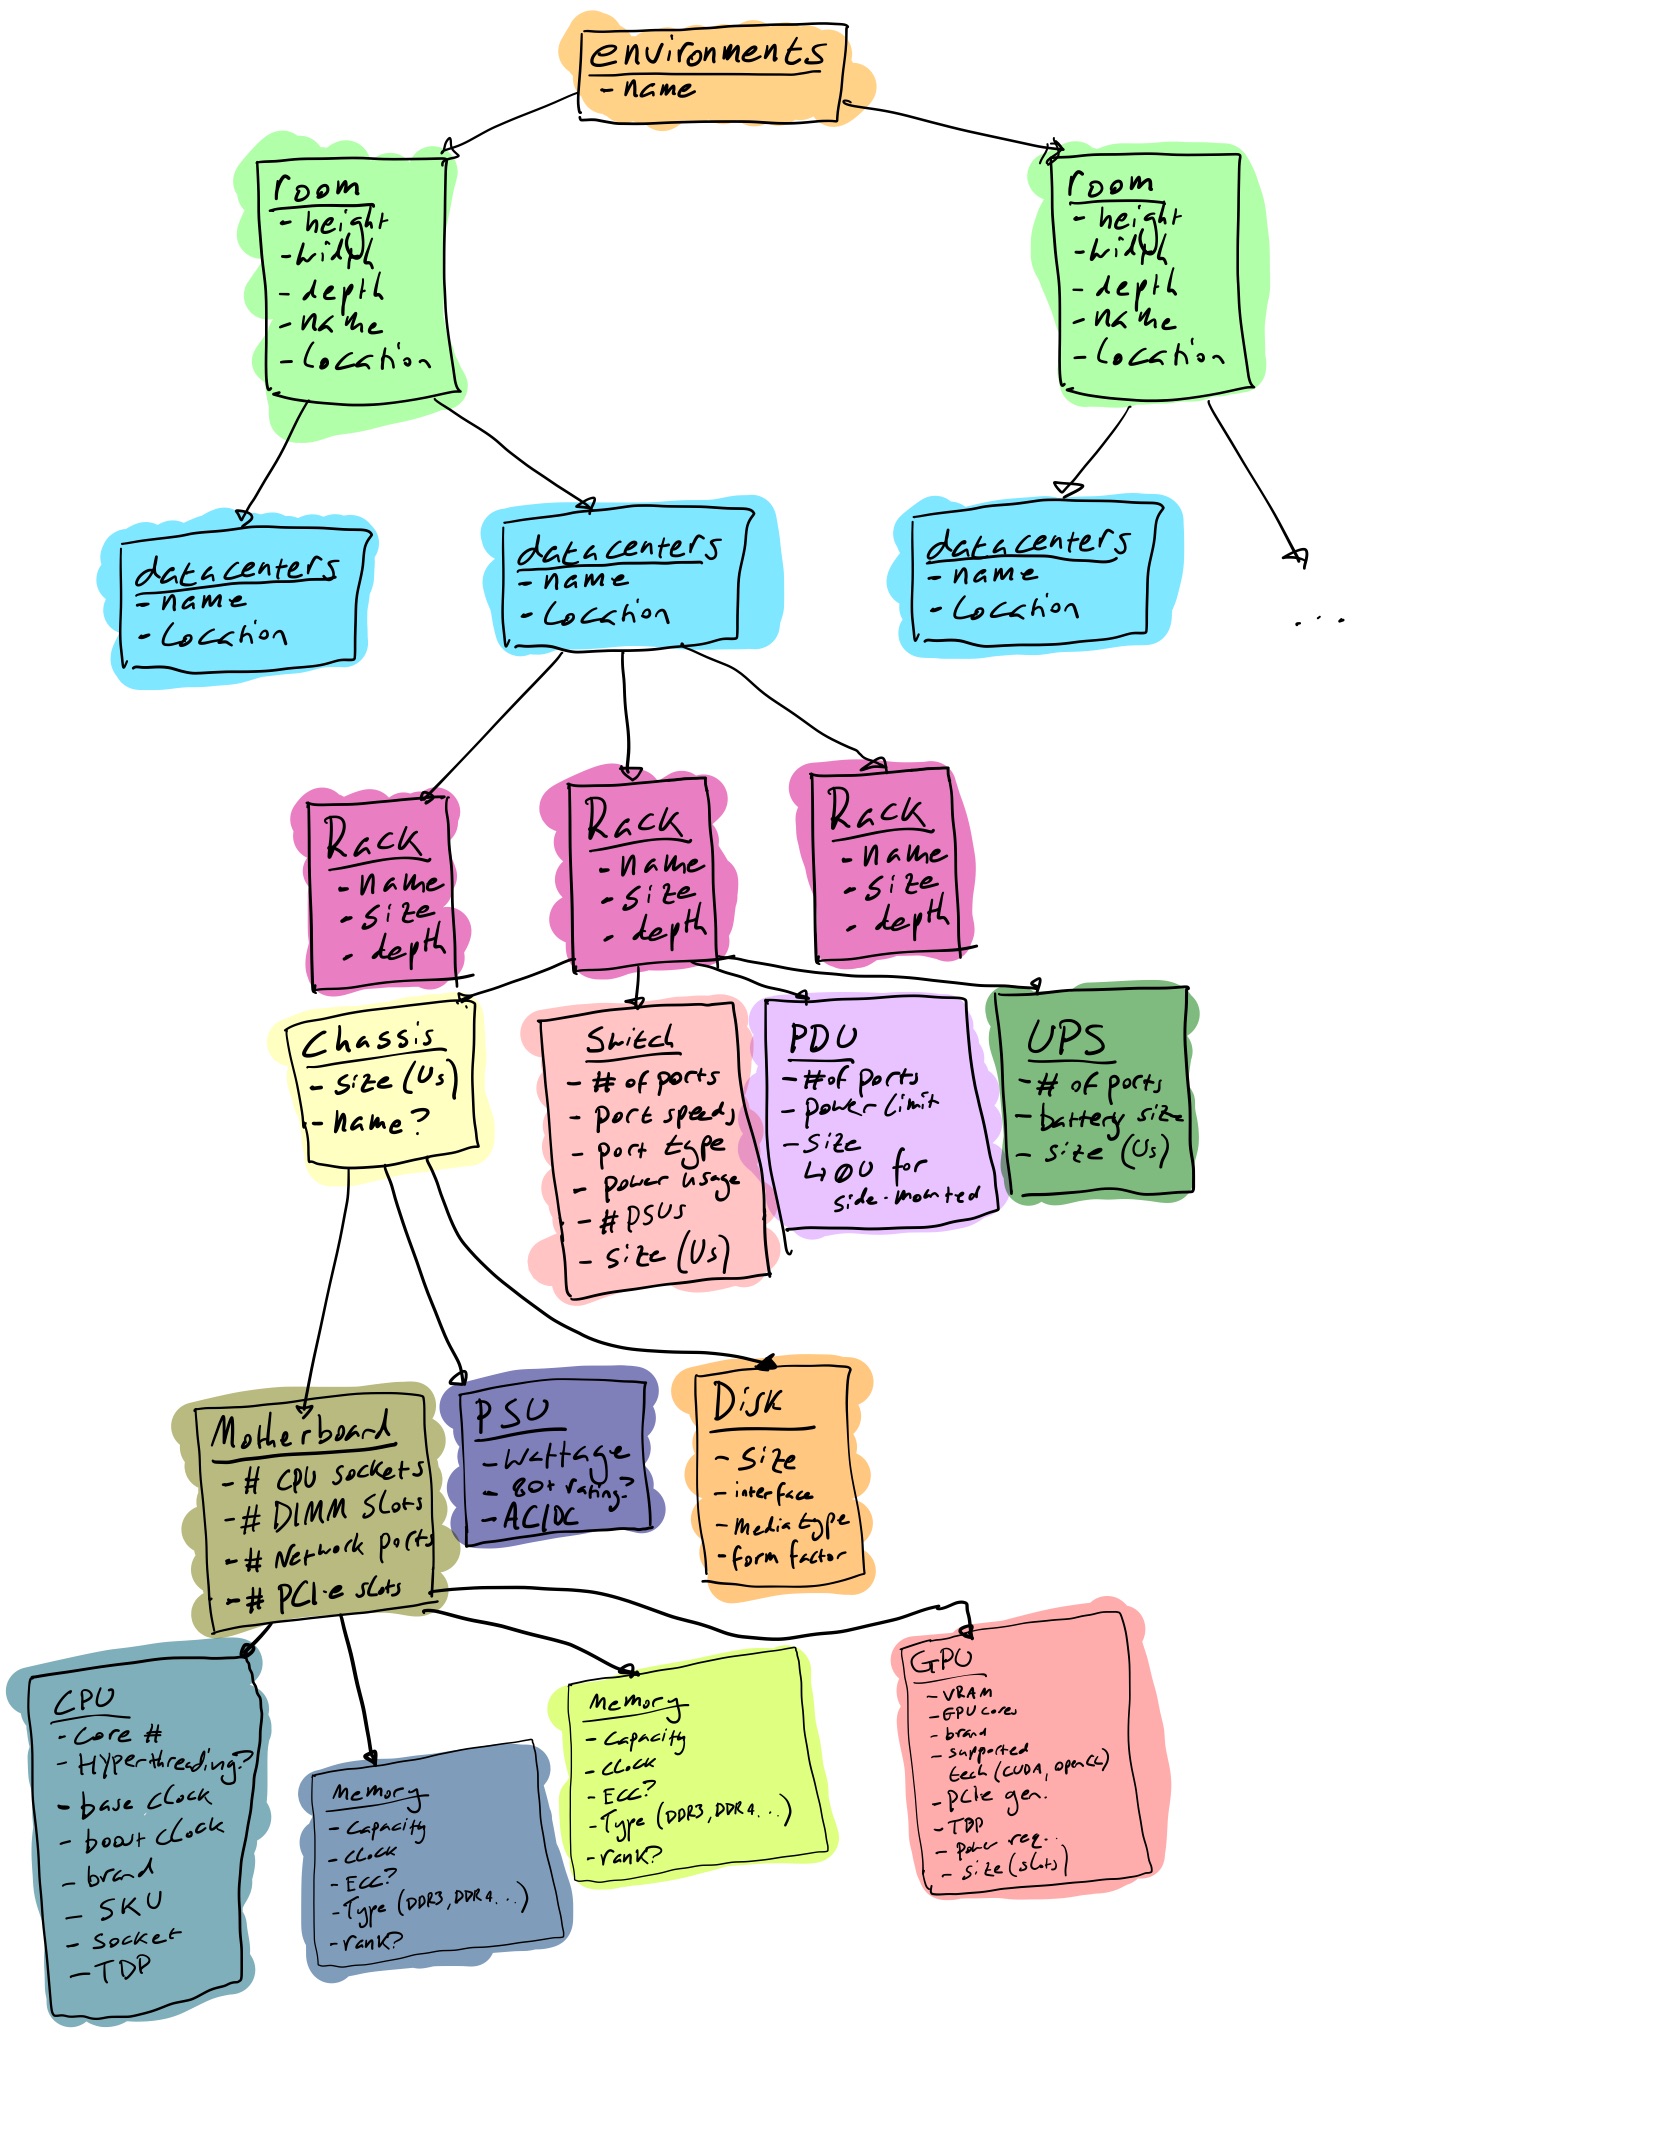 environments
- name
room
- height
- width
- depth
- name
- Location
room
- height
- width
- depth
- name
- Location
datacenters
- name
- Location
datacenters
- name
- Location
datacenters
- name
- Location
...
Rack
- name
- size
- depth
Rack
- name
- size
- depth
Rack
- name
- size
- depth
Chassis
- size (Us)
- name?
Switch
- # of ports
- port speeds
- port type
- power usage
- # PSUs
- size (Us)
PDU
- # of ports
- power limit
- size
↳ 0U for
side-mounted
UPS
- # of ports
- battery size
- size (Us)
Motherboard
- # CPU sockets
- # DIMM slots
- # Network ports
- # PCI-e slots
PSU
- Wattage
- 80+ rating?
- AC/DC
Disk
- size
- interface
- Media type
- form factor
CPU
- Core #
- Hyperthreading?
- base clock
- boost clock
- brand
- SKU
- socket
- TDP
Memory
- Capacity
- clock
- ECC?
- Type (DDR3, DDR4...)
- rank?
Memory
- Capacity
- clock
- ECC?
- Type (DDR3, DDR4...)
- rank?
GPU
- VRAM
- GPU cores
- brand
- supported
tech (CUDA, openCL)
- PCIe gen.
- TDP
- power req..
- size (slots)